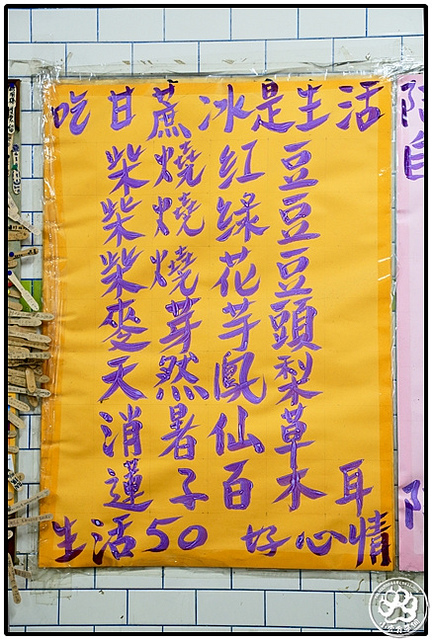 吃甘蔗冰是生活
柴燒紅豆
柴燒綠豆
柴燒花豆
麥芽芋頭
天然鳳梨
消暑仙草
蓮子百木耳
生活50 好心情